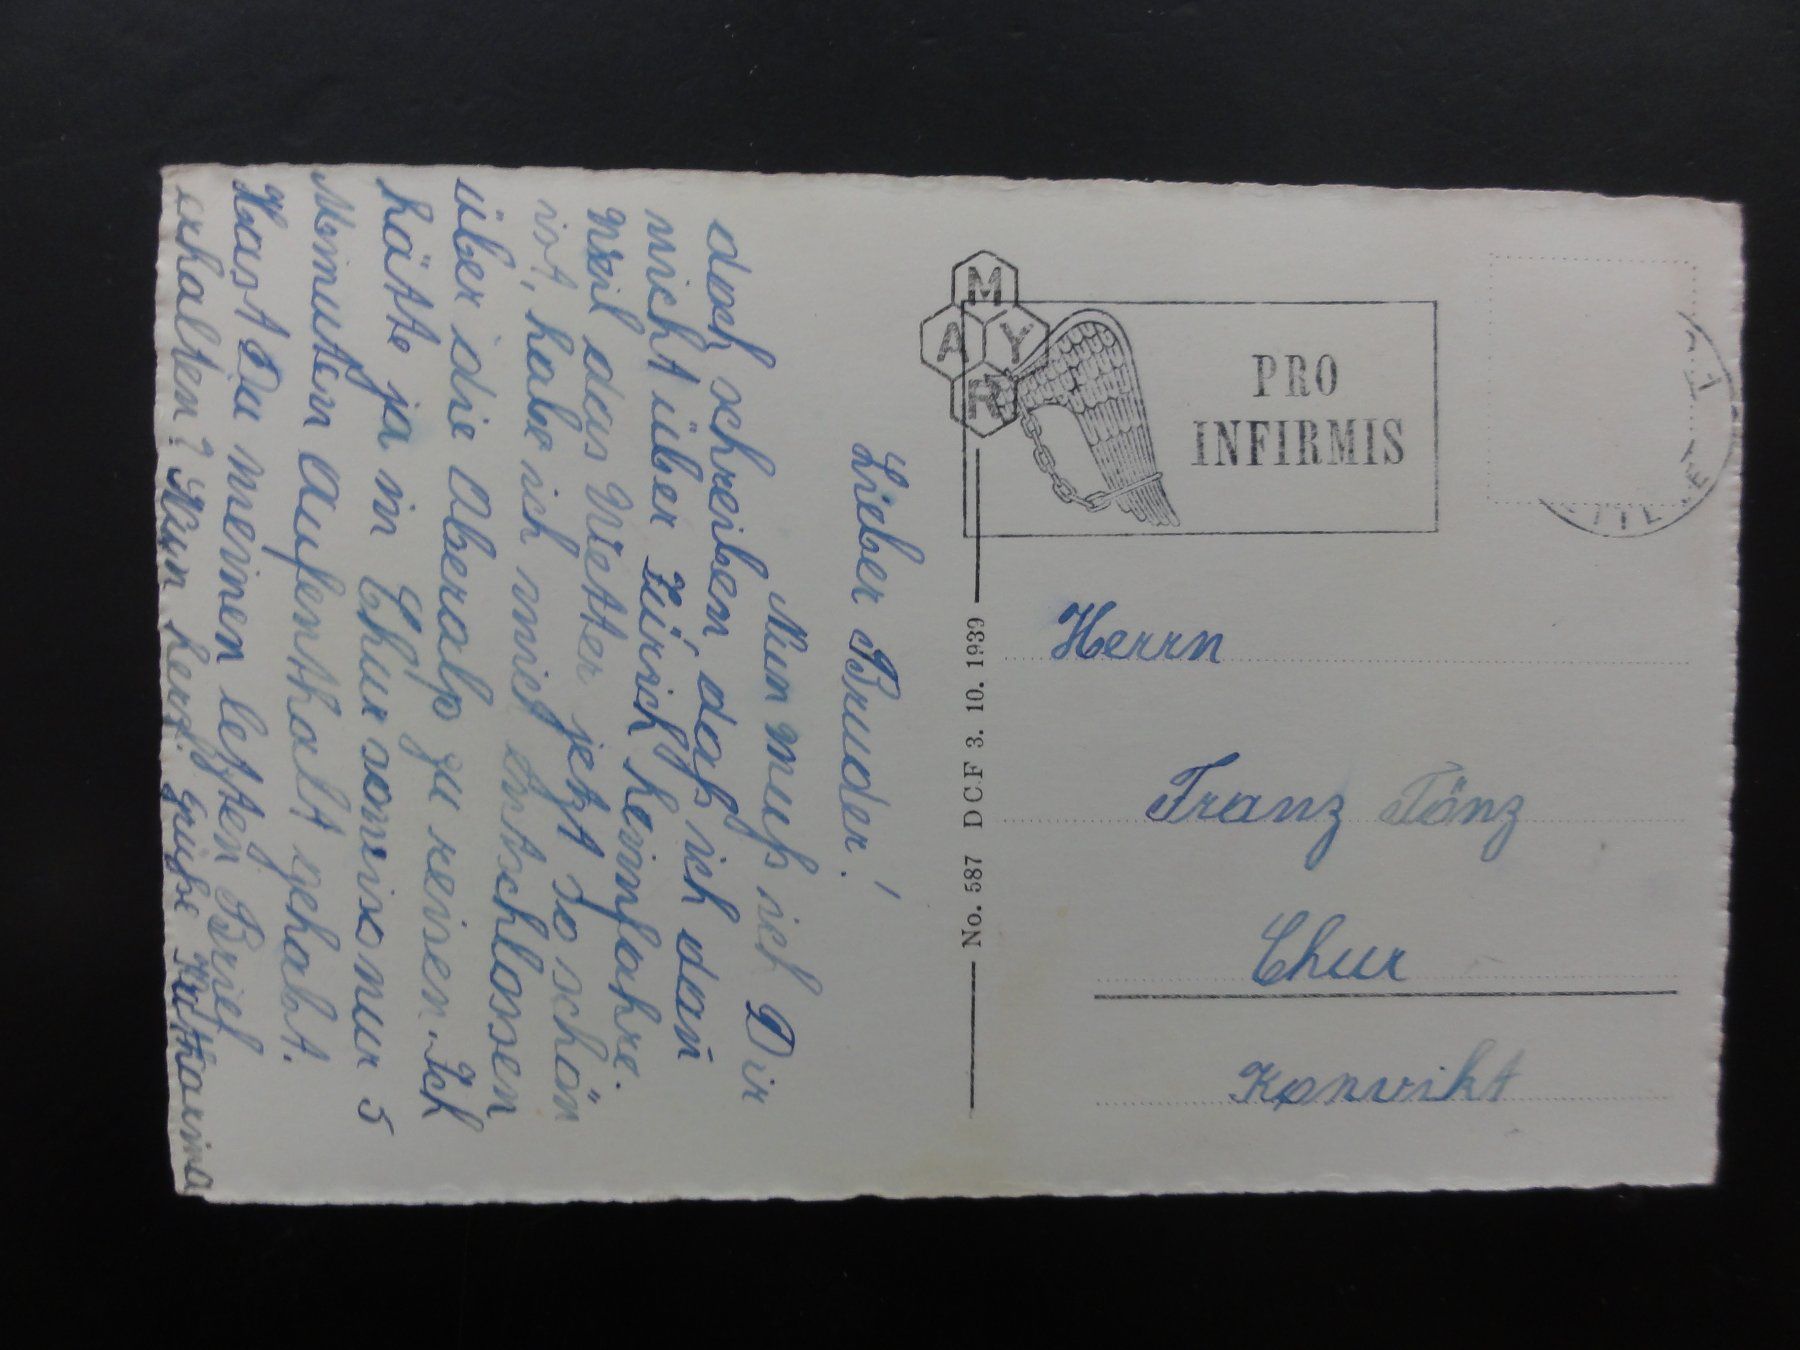 Lieber Bruder!
Nun muß ich Dir
doch schreiben, daß ich dañ
nicht über Zürich heimfahre.
Weil das Wetter jetzt so schön
ist, habe ich mich entschlossen
über die Oberalp zu reisen. Ich
hätte ja in Chur sowiso nur 5
Minuten Aufenthalt gehabt.
Hast Du meinen letzten Brief
erhalten? Nun herz. Grüße Katharina
MAYR
No. 587 DCF 3. 10. 1939
PRO
INFIRMIS
Herrn
Franz Tönz
Chur
Konvikt